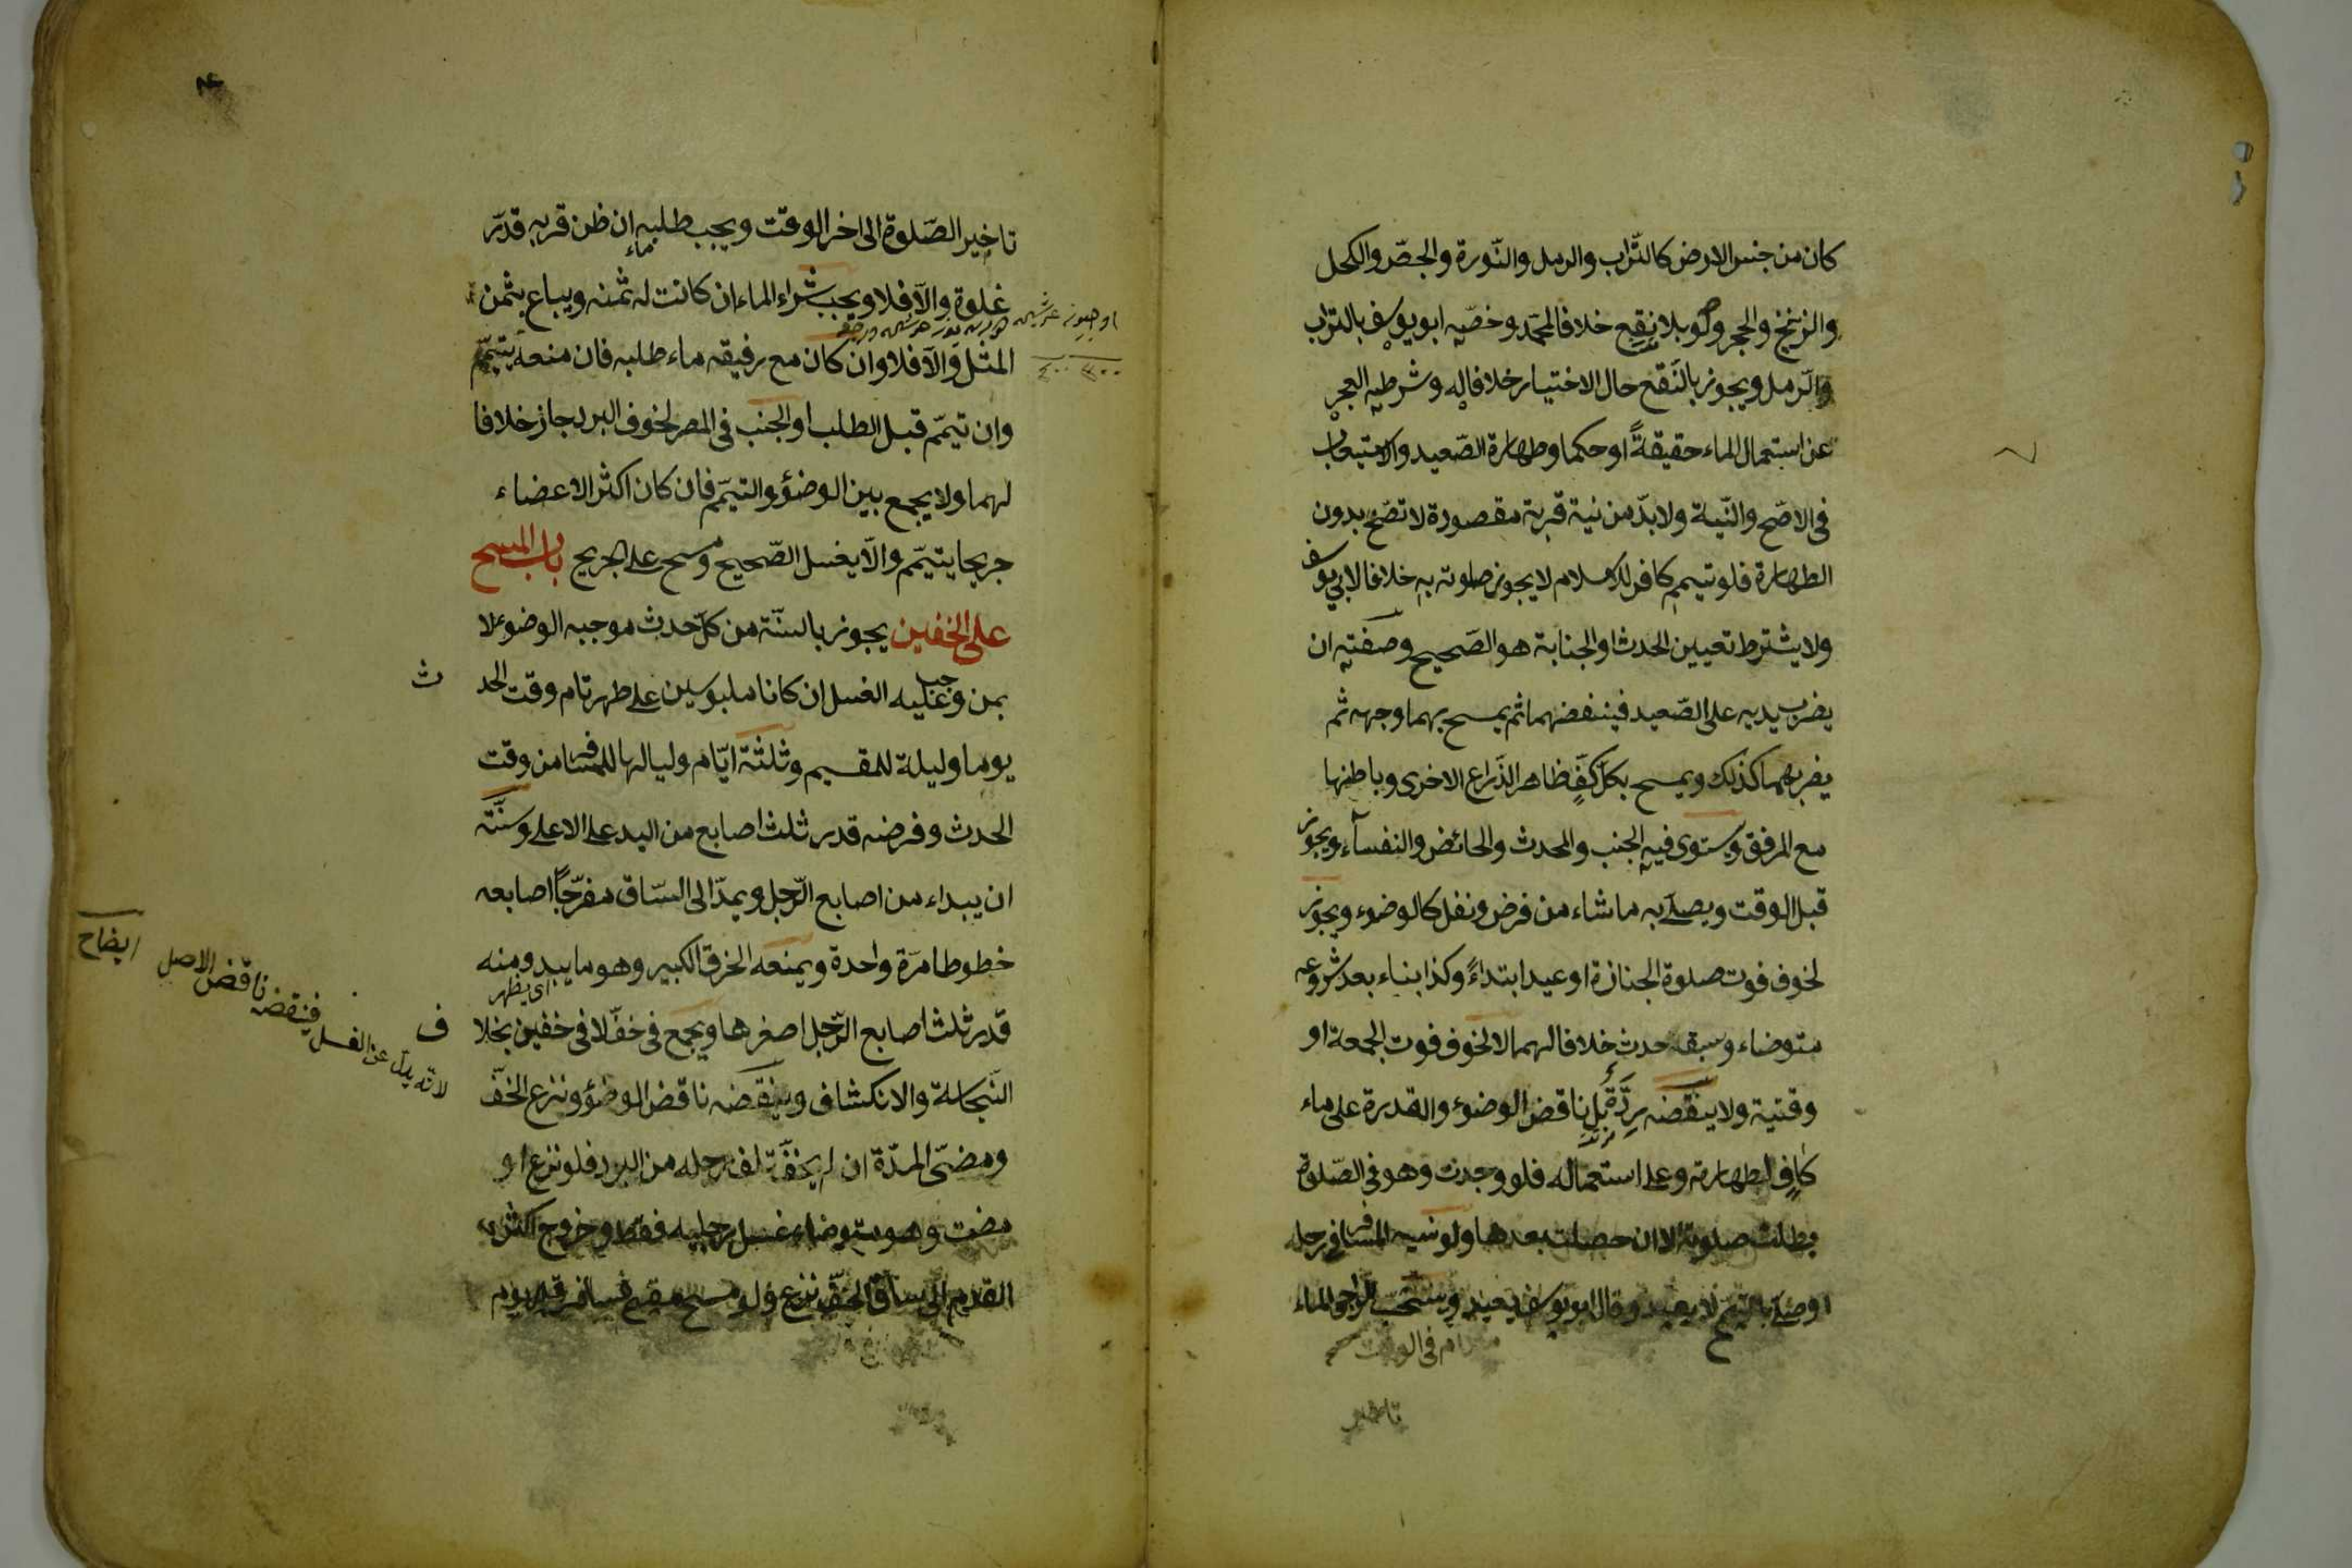 كان من جنس الارض كالتّراب والرمل والنّورة والجصّ والكحل
والزرنيخ والحجر ولو بلا نقع خلافا لمحمّد وخصّه ابو يوسف بالتراب
والرّمل ويجوز بالنّقع حال الاختيار خلافا له وشرطه العجز
عن استعمال الماء حقيقةً او حكما وطهارة الصّعيد والاستيعاب
فى الاصّح والنّية ولا بدّ من نية قربة مقصودة لا تصّح بدون
الطهارة فلو تيمم كافر للاسلام لا يجوز صلوته به خلافا لابي يوسف
ولا يشترط تعيين الحدث او الجنابة هو الصّحيح وصفته ان
يضرب يديه على الصّعيد فينفضهما ثم يمسح بهما وجهه ثم
يضربهما كذلك ويمسح بكلّ كفٍّ ظاهر الذّراع الاخرى وباطنها
مع المرفق ويستوى فيه الجنب والمحدث والحائض والنفسآء ويجوز
قبل الوقت ويصلّى به ما شاء من فرض ونفل كالوضوء ويجوز
لخوف فوت صلوة الجنازة او عيد ابتداءً وكذا بناء بعد شروعه
متوضاء وسبقه حدث خلافا لهما لا لخوف فوت الجمعة او
وقتية ولا ينقضه ردّة بل ناقض الوضوء والقدرة على ماء
كافٍ لطهارته وعلى استعماله فلو وجدت وهو فى الصّلوة
بطلت صلوته لا ان حصلت بعدها ولو نسيه المسافر فى رحله
وصلّى بالتيمّم لا يعيد وقال ابو يوسف يعيد ويستحبّ لراجى الماء
فى الوقت
تاخير
تاخير الصّلوة الى اخر الوقت ويجب طلبه ان ظن قربه قدر
ماء
غلوة والّا فلا ويجب شراء الماء ان كانت له ثمنه ويباع بثمن
المثل والّا فلا وان كان مع رفيقه ماء طلبه فان منعه يتيمّم
وان تيمّم قبل الطلب او الجنب فى المصر لخوف البرد جاز خلافا
لهما ولا يجمع بين الوضؤ والتيمّم فان كان اكثر الاعضاء
جريحا يتيمّم والّا يغسل الصّحيح ومسح على الجريح باب المسح
على الخفين يجوز بالسنّة من كلّ حدث موجبه الوضوء لا
بمن وجب عليه الغسل ان كانا ملبوسين على طهر تام وقت الحد
ث
يوما وليلة للمقيم وثلثة ايّام ولياليها للمسافر من وقت
الحدث وفرضه قدر ثلث اصابع من اليد على الاعلى وسنّته
ان يبداء من اصابع الرّجل ويمدّ الى السّاق مفرّجًا اصابعه
خطوطا مرّة واحدة ويمنعه الخرق الكبير وهو ما يبدو منه
اى يظهر
قدر ثلث اصابع الرّجل اصغرها ويجمع فى خفّ لا فى خفين بخلا
ف
النّجاسة والانكشاف وينقضه ناقض الوضؤ ونزع الخفّ
ومضىّ المدّة ان لم يخف تلف رجله من البرد فلو نزع او
مضت وهو متوضاء غسل رجليه فقط وخروج اكثر
القدم الى ساق الخفّ نزع ولو مسح مقيم فسافر قبل يوم
لانّه بدل عن الغسل فينقضه ناقض الاصل ايضاح